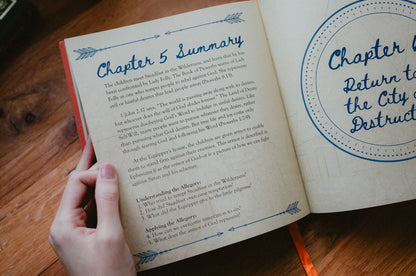 Chapter 5 Summary
The children meet Steadfast in the Wilderness, and learn that he has
been confronted by Lady Folly. The Book of Proverbs warns of Lady
Folly as one who tempts people to rebel against God. She represents
evil or hateful desires that lead people astray (Proverbs 9:13).
1 John 2:17 says, "The world is passing away along with its desires,
but whoever does the will of God abides forever." The Lord of Desire
represents disobeying God's Word to indulge in sinful desires. Like
Self-Will, many people seem to pursue whatever they desire, rather
than pursuing what God desires. But true life and joy come
through fearing God and following his Word (Proverbs 12:28).
At the Equipper's house, the children are given armor to enable
them to stand firm against their enemies. This armor is described in
Ephesians 6 as the armor of God—it is a picture of how we can fight
against Satan and his schemes.
Understanding the Allegory:
1. Who tried to tempt Steadfast in the Wilderness?
2. How did Steadfast overcome temptation?
3. What did the Equipper give to the little pilgrims?
Applying the Allegory:
4. How can we overcome temptation to sin?
5. What does the armor of God represent?
Chapter
Return to
the City of
Destruct